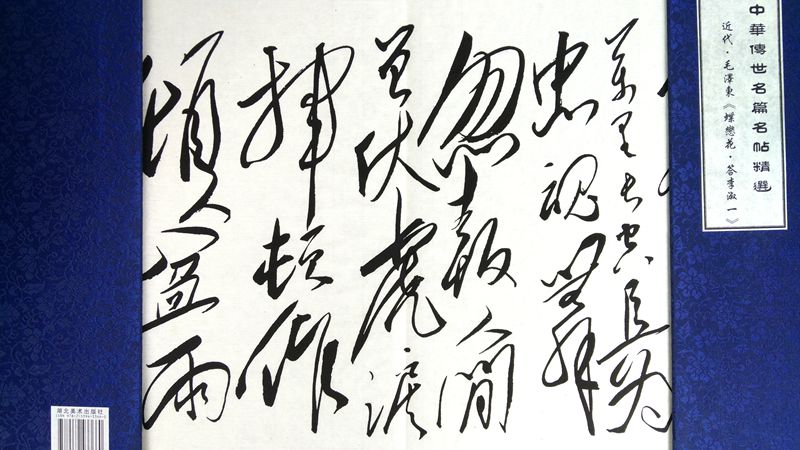 中華傳世名篇名帖精選
近代·毛澤東《蝶戀花·答李淑一》
萬里長空且為
忠魂舞
忽報人間
曾伏虎淚
飛頓作
傾盆雨
湖北美术出版社